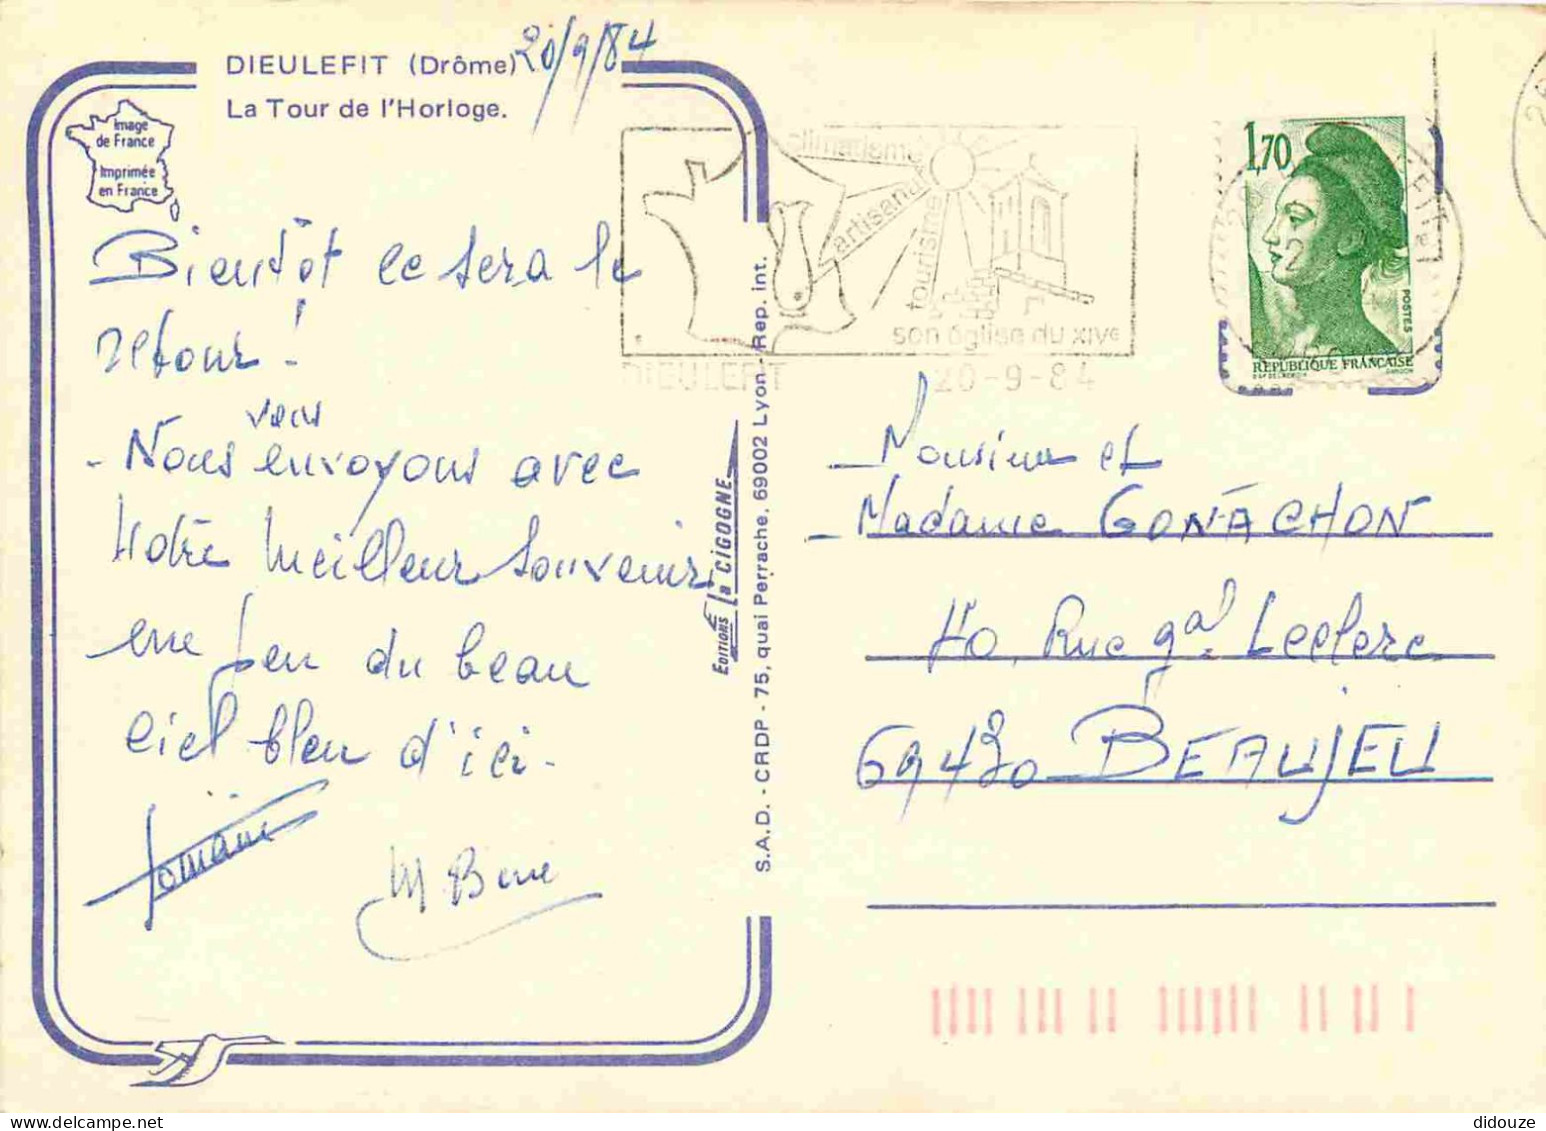 DIEULEFIT (Drôme) 20/9/84
La Tour de l'Horloge.
Image
de France
Imprimée
en France
Bientôt ce sera le
retour !
- Nous vous envoyons avec
Notre meilleur souvenir
une peu du beau
ciel bleu d'ici -
M Bene
EDITIONS La CIGOGNE
S.A.D. - CRDP - 75, quai Perrache. 69002 Lyon - Rep. int.
climatisme
artisanat
tourisme
son église du XIVe
DIEULEFIT 20-9-84
1,70
POSTES
REPUBLIQUE FRANÇAISE
Monsieur et
Madame GONACHON
40, Rue gal Leclerc
69430 BEAUJEU
didouze